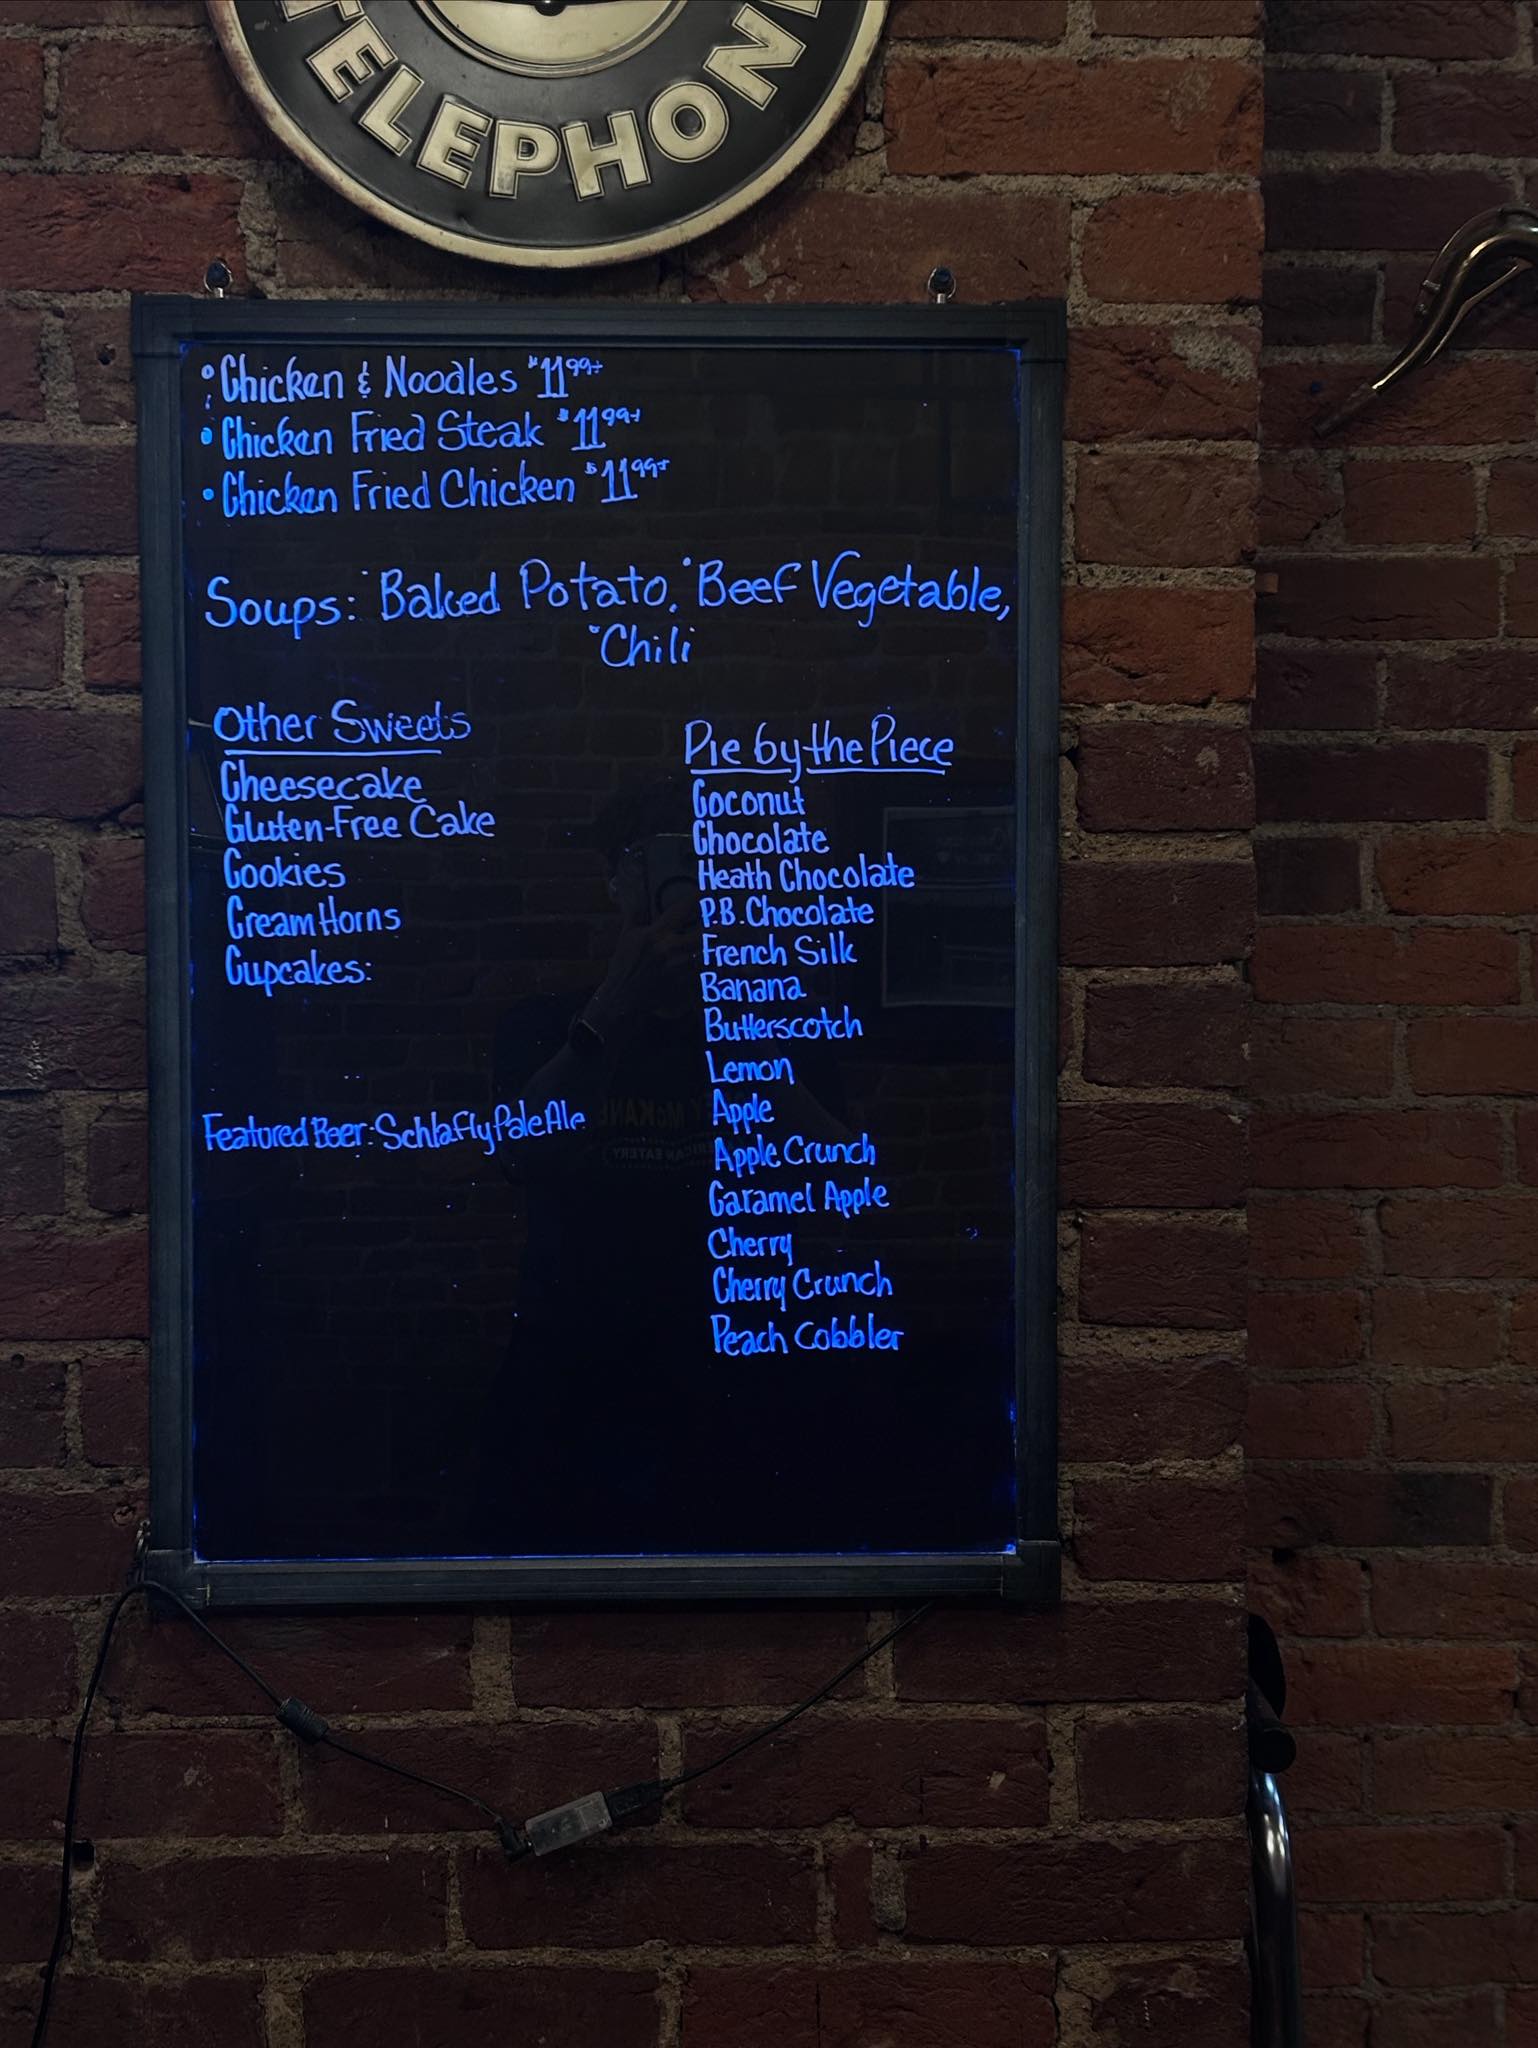 TELEPHON
• Chicken & Noodles $11.99+
• Chicken Fried Steak $11.99+
• Chicken Fried Chicken $11.99+
Soups: •Baked Potato, •Beef Vegetable,
•Chili
Other Sweets
Cheesecake
Gluten-Free Cake
Cookies
Cream Horns
Cupcakes:
Featured Beer: Schlafly Pale Ale
Pie by the Piece
Coconut
Chocolate
Heath Chocolate
P.B. Chocolate
French Silk
Banana
Butterscotch
Lemon
Apple
Apple Crunch
Caramel Apple
Cherry
Cherry Crunch
Peach Cobbler